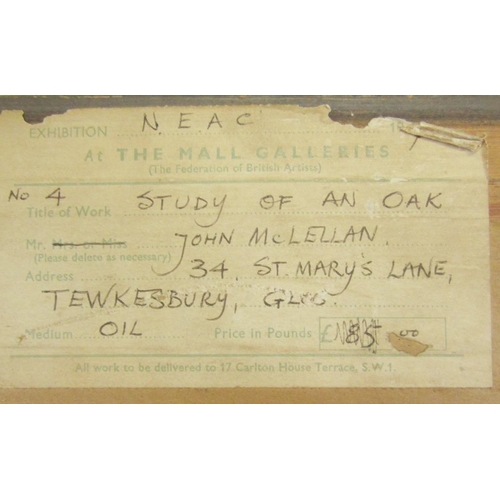 EXHIBITION N.E.A.C. 19
At THE MALL GALLERIES
(The Federation of British Artists)
No 4 STUDY OF AN OAK
Title of Work
Mr. Mrs. or Miss JOHN McLELLAN.
(Please delete as necessary)
Address 34. ST. MARY'S LANE,
TEWKESBURY, GLOS.
Medium OIL Price in Pounds £ 85.00
All work to be delivered to 17 Carlton House Terrace, S.W.1.